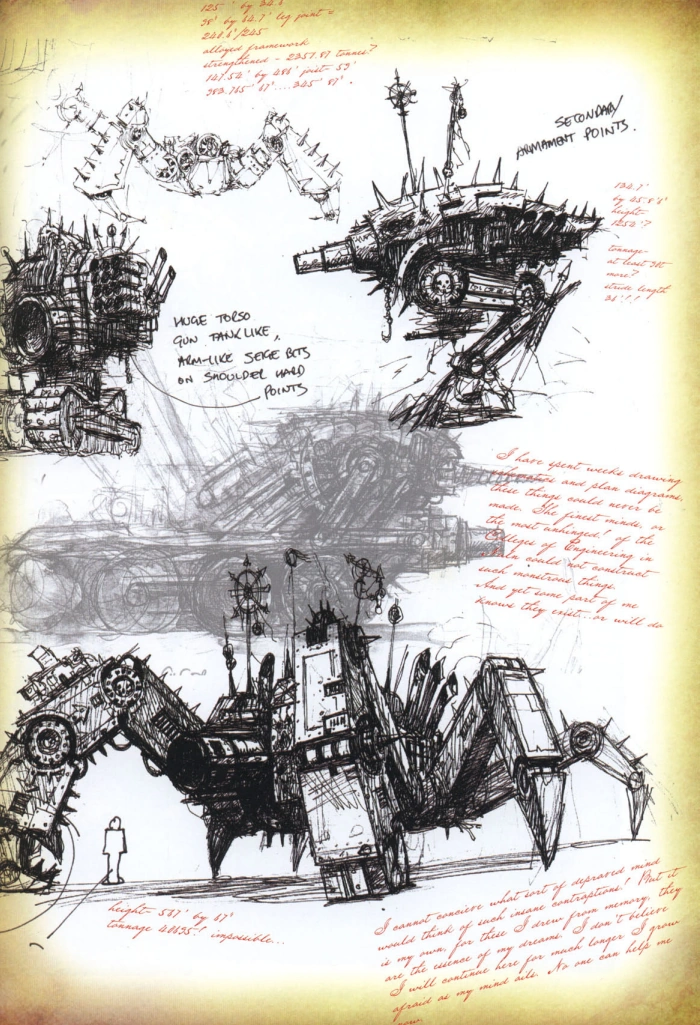 125' by 34.8
38' by 64.7' leg joint =
248.6'/245
alloyed framework
strengthened - 2357.87 tonnes?
147.54' by 486 joist- 53'
383.765' 67'....345' 87'.
SECONDARY
ARMAMENT POINTS.
by 45.8'8"
height-
tonnage-
at least
more?
stride length
HUGE TORSO
GUN TANK LIKE,
ARM-LIKE SEIGE BITS
ON SHOULDER HARD
POINTS
I have spent weeks drawing
and plan diagrams,
these things could never be
made. The finest minds, or
the most unhinged! of the
Colleges of Engineering in
could not construct
such monstrous things.
And yet some part of me
knows they exist...or will do
height- 567' by 67'
tonnage 40695-! impossible...
I cannot concieve what sort of depraved mind
would think of such insane contraptions! But it
is my own, for these I drew from memory, they
are the essence of my dreams. I don't believe
I will continue here for much longer I grow
afraid as my mind ails. No one can help me
now.